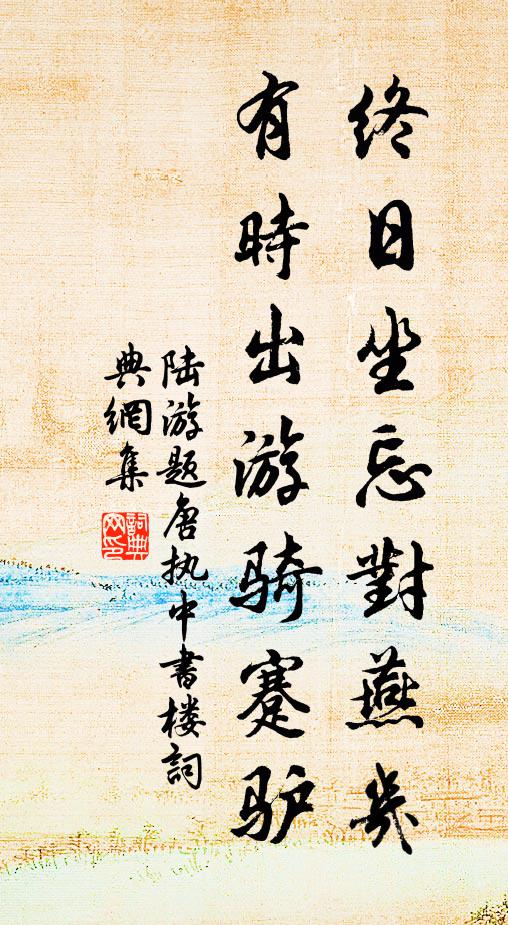 终日坐忘對燕几
有時出游骑蹇驴
陆游题唐执中書楼詞
典網集
詞典网印